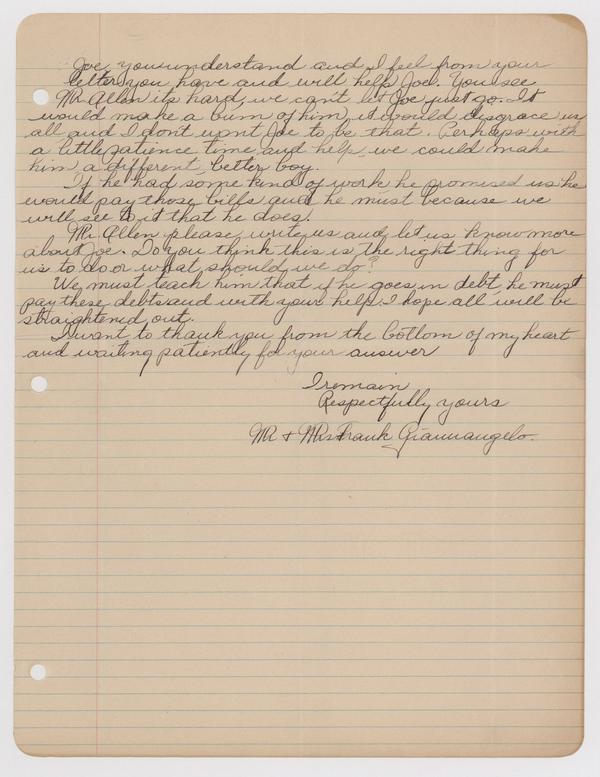 Joe, you understand and I feel from your
letter you have and will help Joe. You see
Mr Allen its hard, we can't let Joe just go. It
would make a bum of him, it would disgrace us
all and I dont want Joe to be that. Perhaps with
a little patience time and help, we could make
him a different, better boy.
If he had some kind of work he promised us he
would pay those bills and he must because we
will see to it that he does.
Mr. Allen please, write us and let us know more
about Joe. Do you think this is the right thing for
us to do or what should we do?
We must teach him that if he goes in debt, he must
pay these debts and with your help I hope all will be
straightened out.
I want to thank you from the bottom of my heart
and waiting patiently for your answer
I remain
Respectfully yours
Mr + Mrs Frank Giannangelo.